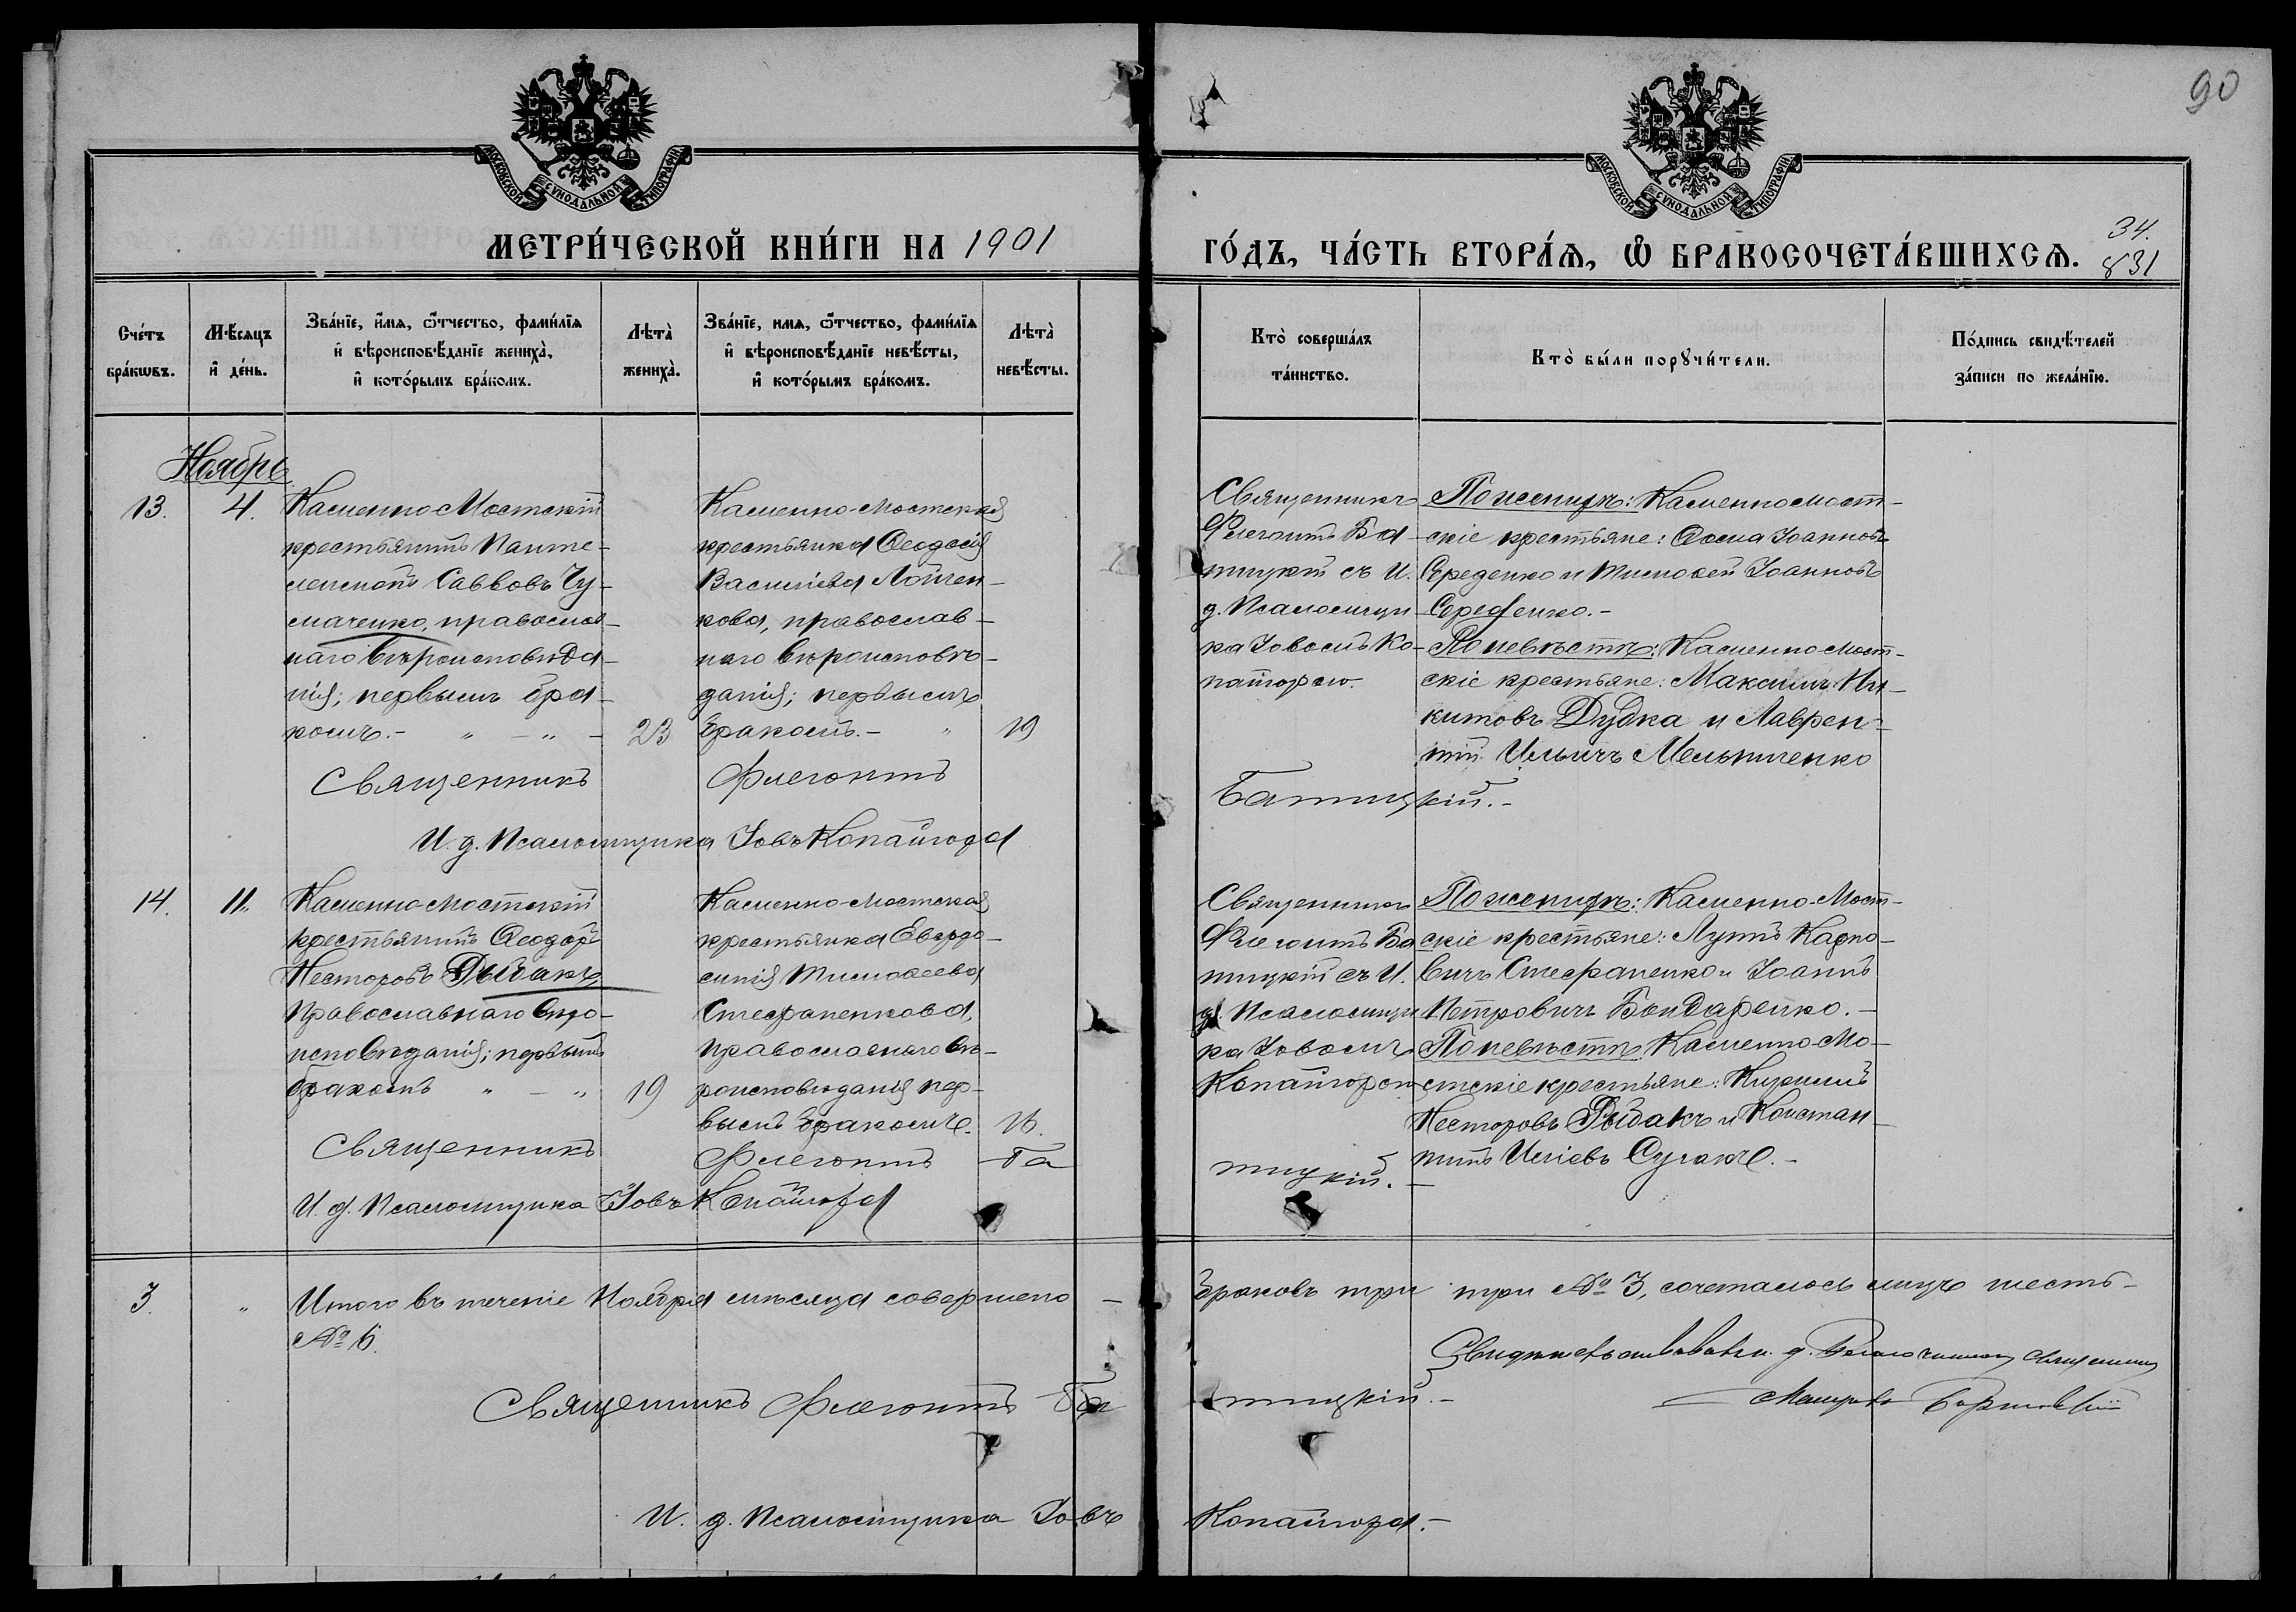 90
МОСКОВСКОЙ СѴНОДАЛЬНОЙ ТИПОГРАФІИ
МОСКОВСКОЙ СѴНОДАЛЬНОЙ ТИПОГРАФІИ
МЕТРИ́ЧЕСКОЙ КНИ́ГИ НА 1901
ГО́ДЪ, ЧА́СТЬ ВТОРА́Ѧ, Ѽ БРАКОСОЧЕТА́ВШИХСѦ.
34.
831
Сче́тъ бра́кѡвъ.
Мѣ́сяцъ и҆ де́нь.
Зва́нїе, и҆́мѧ, ѻ҆́тчество, фами́лїѧ и҆ вѣроисповѣ́данїе жениха̀, и҆ кото́рымъ бра́комъ.
Лѣта̀ жениха̀.
Зва́нїе, имѧ, ѻ҆́тчество, фами́лїѧ и҆ вѣроисповѣ́данїе невѣ́сты, и҆ кото́рымъ бра́комъ.
Лѣта̀ невѣ́сты.
Кто̀ соверша́лъ та́инство.
Кто̀ бы́ли порꙋчи́тели.
По́дпись свидѣ́телей за́писи по жела́нїю.
Ноябрь
13.
4.
Каменно-Мостскій
крестьянинъ Панте-
леимонъ Савовъ Чу-
маченко, православ-
наго вѣроисповѣда-
нія; первымъ бра-
комъ.-
23
Каменно-Мостская
крестьянка Ѳеодосія
Васильева Лойчен-
кова, православ-
наго вѣроисповѣ-
данія; первымъ
бракомъ.-
19
Священникъ
Флегонтъ Ба-
тицкій съ И.
д. Псаломщи-
ка Іовомъ Ко-
пайгорою.
По женихѣ: Каменномост-
скіе крестьяне: Ѳома Іоанновъ
Середенко и Тимоѳей Іоанновъ
Середенко.-
По невѣстѣ: Каменно мост-
скіе крестьяне: Максимъ Ни-
китовъ Дудка и Лаврен-
тій Ильичъ Мельниченко
Священникъ Флегонтъ Батицкій.-
И. д. Псаломщика Іовъ Копайгора
14.
11.
Каменно-мостскій
крестьянинъ Ѳеодоръ
Несторовъ Рыбакъ
православнаго вѣро-
исповѣданія; первымъ
бракомъ
19
Каменно-Мостская
крестьянка Евдо-
синія Тимоѳеева
Стефаненкова,
православнаго вѣ-
роисповѣданія пер-
вымъ бракомъ.
16.
Священникъ
Флегонтъ Ба
тицкій съ И.
д. Псаломщи
ка Іовомъ
Копайгорою
По женихѣ: Каменно-Мост-
скіе крестьяне: Лупъ Карпо-
вичъ Стефаненко и Іоаннъ
Петровичъ Бондаренко.-
По невѣстѣ: Каменно-Мо-
стскіе крестьяне: Кириллъ
Несторовъ Рыбакъ и Констан
тинъ Иліевъ Сугакъ.-
Священникъ Флегонтъ Ба тицкій.-
И. д. Псаломщика Іовъ Копайгора
3.
Итого въ теченіе Ноября мѣсяца совершено - браковъ три три № 3, сочеталось лицъ шесть-
№ 6.
Свидѣтельствовалъ и. д. Благочиннаго Священникъ
Священникъ Флегонтъ Ба тицкій.-
И. д. Псаломщика Іовъ Копайгора.-